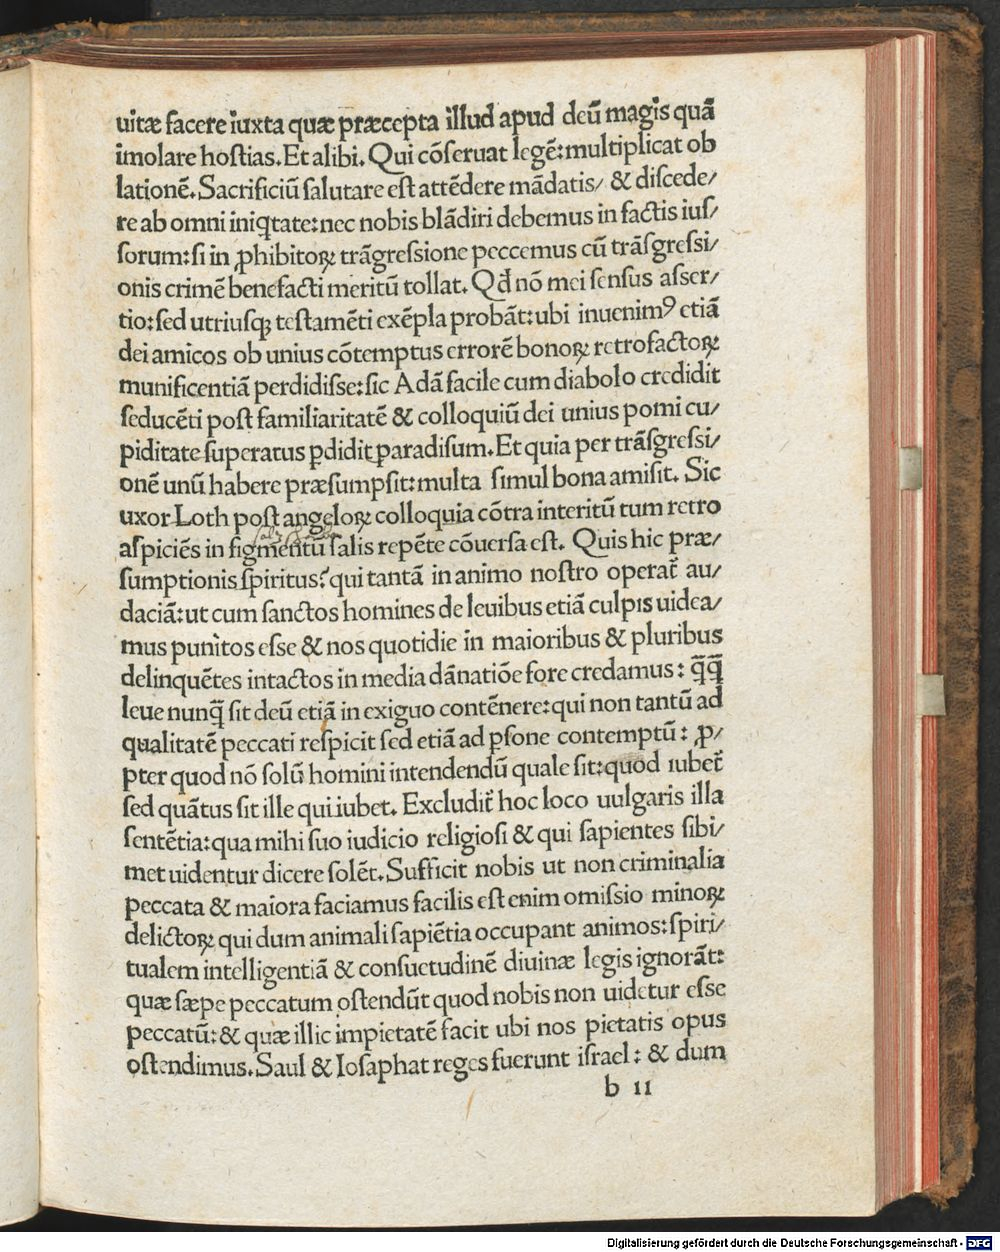 uitæ facere iuxta quæ præcepta illud apud deū magis quā
imolare hoſtias. Et alibi. Qui cōſeruat legē: multiplicat ob
lationē. Sacrificiū ſalutare eſt attēdere mādatis/ & diſcede/
re ab omni iniq̄tate: nec nobis blādiri debemus in factis iuſ/
ſorum: ſi in ꝓhibitoꝝ trāgreſſione peccemus cū trāſgreſſi/
onis crimē benefacti meritū tollat. Qd̄ nō mei ſenſus aſſer/
tio: ſed utriuſqꝫ teſtamēti exēpla probāt: ubi inuenimꝰ etiā
dei amicos ob unius cōtemptus errorē bonoꝝ retrofactoꝝ
munificentiā perdidiſſe: ſic Adā facile cum diabolo credidit
ſeducēti poſt familiaritatē & colloquiū dei unius pomi cu/
piditate ſuperatus ꝑdidit paradiſum. Et quia per trāſgreſſi/
onē unū habere præſumpſit: multa ſimul bona amiſit. Sic
uxor Loth poſt angeloꝝ colloquia cōtra interitū tum retro
aſpiciēs in figmentū ſalis repēte cōuerſa eſt. Quis hic præ/
ſumptionis ſpiritus? qui tantā in animo noſtro operat̄ au/
daciā: ut cum ſanctos homines de leuibus etiā culpis uidea/
mus punitos eſſe & nos quotidie in maioribus & pluribus
delinquētes intactos in media dānatiōe fore credamus: q̄q̄
leue nunq̄ ſit deū etiā in exiguo contēnere: qui non tantū ad
qualitatē peccati reſpicit ſed etiā ad ꝑſone contemptū: ꝓ/
pter quod nō ſolū homini intendendū quale ſit: quod iubet̄
ſed quātus ſit ille qui iubet. Excludit̄ hoc loco uulgaris illa
ſentētia: qua mihi ſuo iudicio religioſi & qui ſapientes ſibi/
met uidentur dicere ſolēt. Sufficit nobis ut non criminalia
peccata & maiora faciamus facilis eſt enim omiſſio minoꝝ
delictoꝝ qui dum animali ſapiētia occupant animos: ſpiri/
tualem intelligentiā & conſuetudinē diuinæ legis ignorāt:
quæ ſæpe peccatum oſtendūt quod nobis non uidetur eſſe
peccatū: & quæ illic impietatē facit ubi nos pietatis opus
oſtendimus. Saul & Ioſaphat reges fuerunt iſrael: & dum
b ii
Digitalisierung gefördert durch die Deutsche Forschungsgemeinschaft - DFG